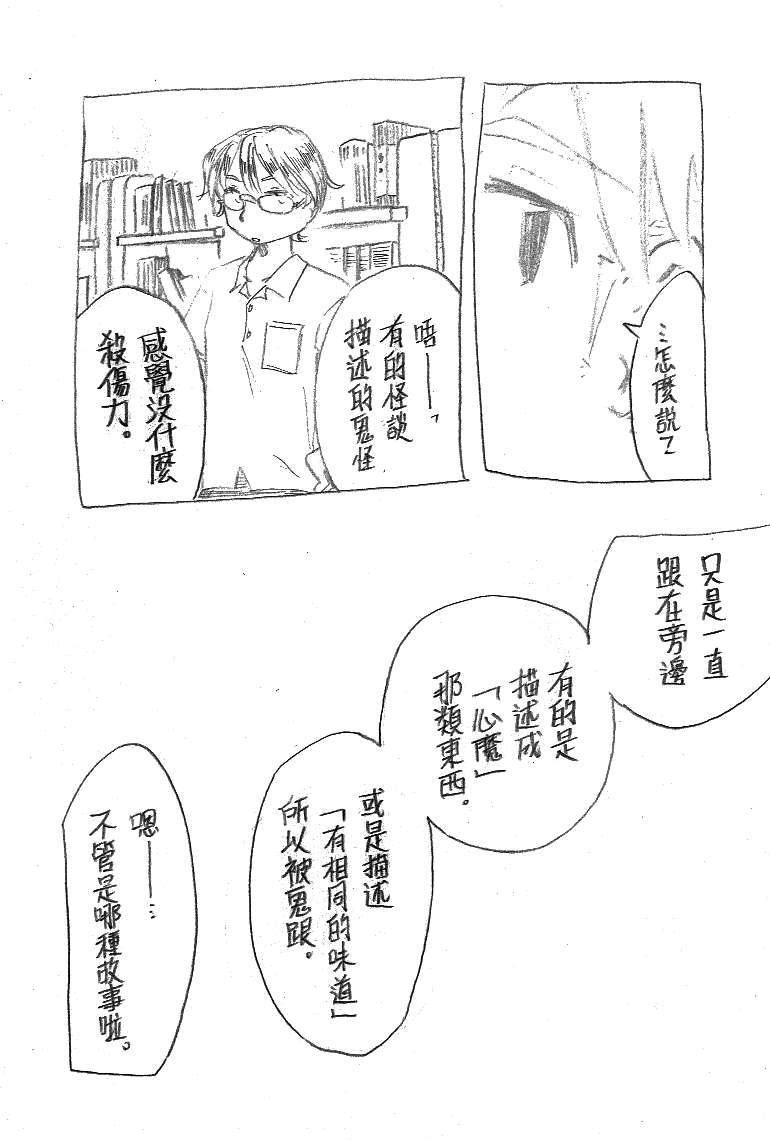 …怎麼說了
唔——，
有的怪談
描述的鬼怪
感覺沒什麼
殺傷力。
只是一直
跟在旁邊
有的是
描述成
「心魔」
那類東西。
或是描述
「有相同的味道」
所以被鬼跟。
嗯——…
不管是哪種故事啦。